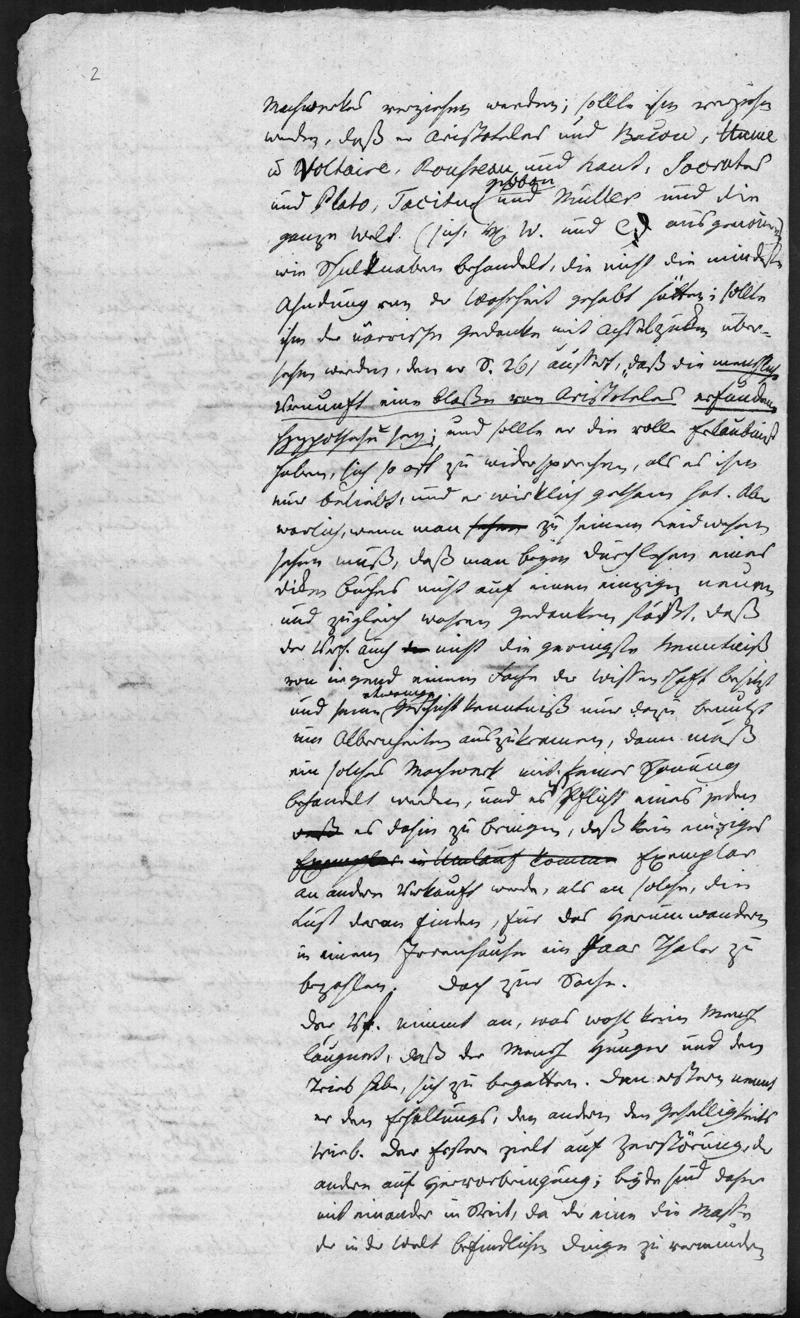 2
Machwerkes verziehen werden; sollte ihm verziehen
werden, daß er Aristoteles und Bacon, Hume
u Voltaire, Rousseau und Kant, Socrates
und Plato, Tacitus Gibbon und Müller und die
ganze Welt. (sich, W. und C. ausgenomen)
wie Schulknaben behandelt, die nicht die mindeste
Ahndung von der Wahrheit gehabt hätten; sollte
ihm der närrische Gedanke mit Achselzuken über-
sehen werden, den er S. 261 äussert, „daß die menschliche
Vernunft eine bloße von Aristoteles erfundene
Hypothese sey; und sollte er die volle Erlaubniß
haben, sich so oft zu widersprechen, als es ihm
nur beliebt, und er wirklich gethan hat. Aber
warlich, wenn man sehen zu seinem Leidwesen
sehen muß, daß man beym Durchlesen eines
diken Buches nicht auf einen einzigen neuen
und zugleich wahren Gedanken stößt, daß
der Verf. auch nicht die geringste Kenntniß
von irgend einem Fache der Wissenschaft besitzt
und seine etwanige Geschichtkenntniß nur dazu benutzt
um Albernheiten auszukramen, dann muß
ein solches Machwerk mit keiner Schonung
behandelt werden, und es ist Pflicht eines jeden
daß es dahin zu bringen, daß kein einziges
Exemplar in Umlauf komme Exemplar
an andere verkauft werde, als an solche, die
Lust daran finden, für das Herumwandern
in einem Irrenhause ein Paar Thaler zu
bezahlen. Doch zur Sache.
Der Vf. nimmt an, was wohl kein Mensch
läugnet, daß der Mensch Hunger und den
Trieb habe, sich zu begatten. Den erstern nennt
er den Erhaltungs, den andern den Geselligkeits
trieb. Der Erstere zielt auf Zerstörung, der
andere auf Hervorbringung; beyde sind daher
mit einander in Streit, da der eine die Masse
der in der Welt befindlichen Dinge zu vermindern